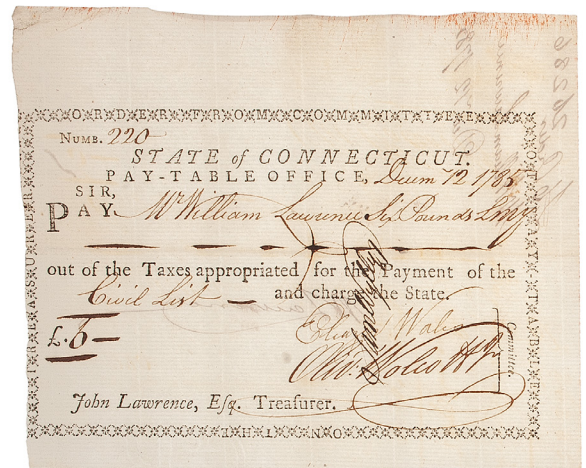 ORDER FROM COMMITTEE
OF PAY TABLE
ON THE
TREASURER
NUMB. 220
STATE of CONNECTICUT.
PAY-TABLE OFFICE, Decem 12 1785
SIR,
PAY Mr William Lawrence Six Pounds LMy
out of the Taxes appropriated for the Payment of the
Civil List — and charge the State.
£.6—
Eliaz Wales
Oliv. Wolcott Jr
Committee
John Lawrence, Esq. Treasurer.